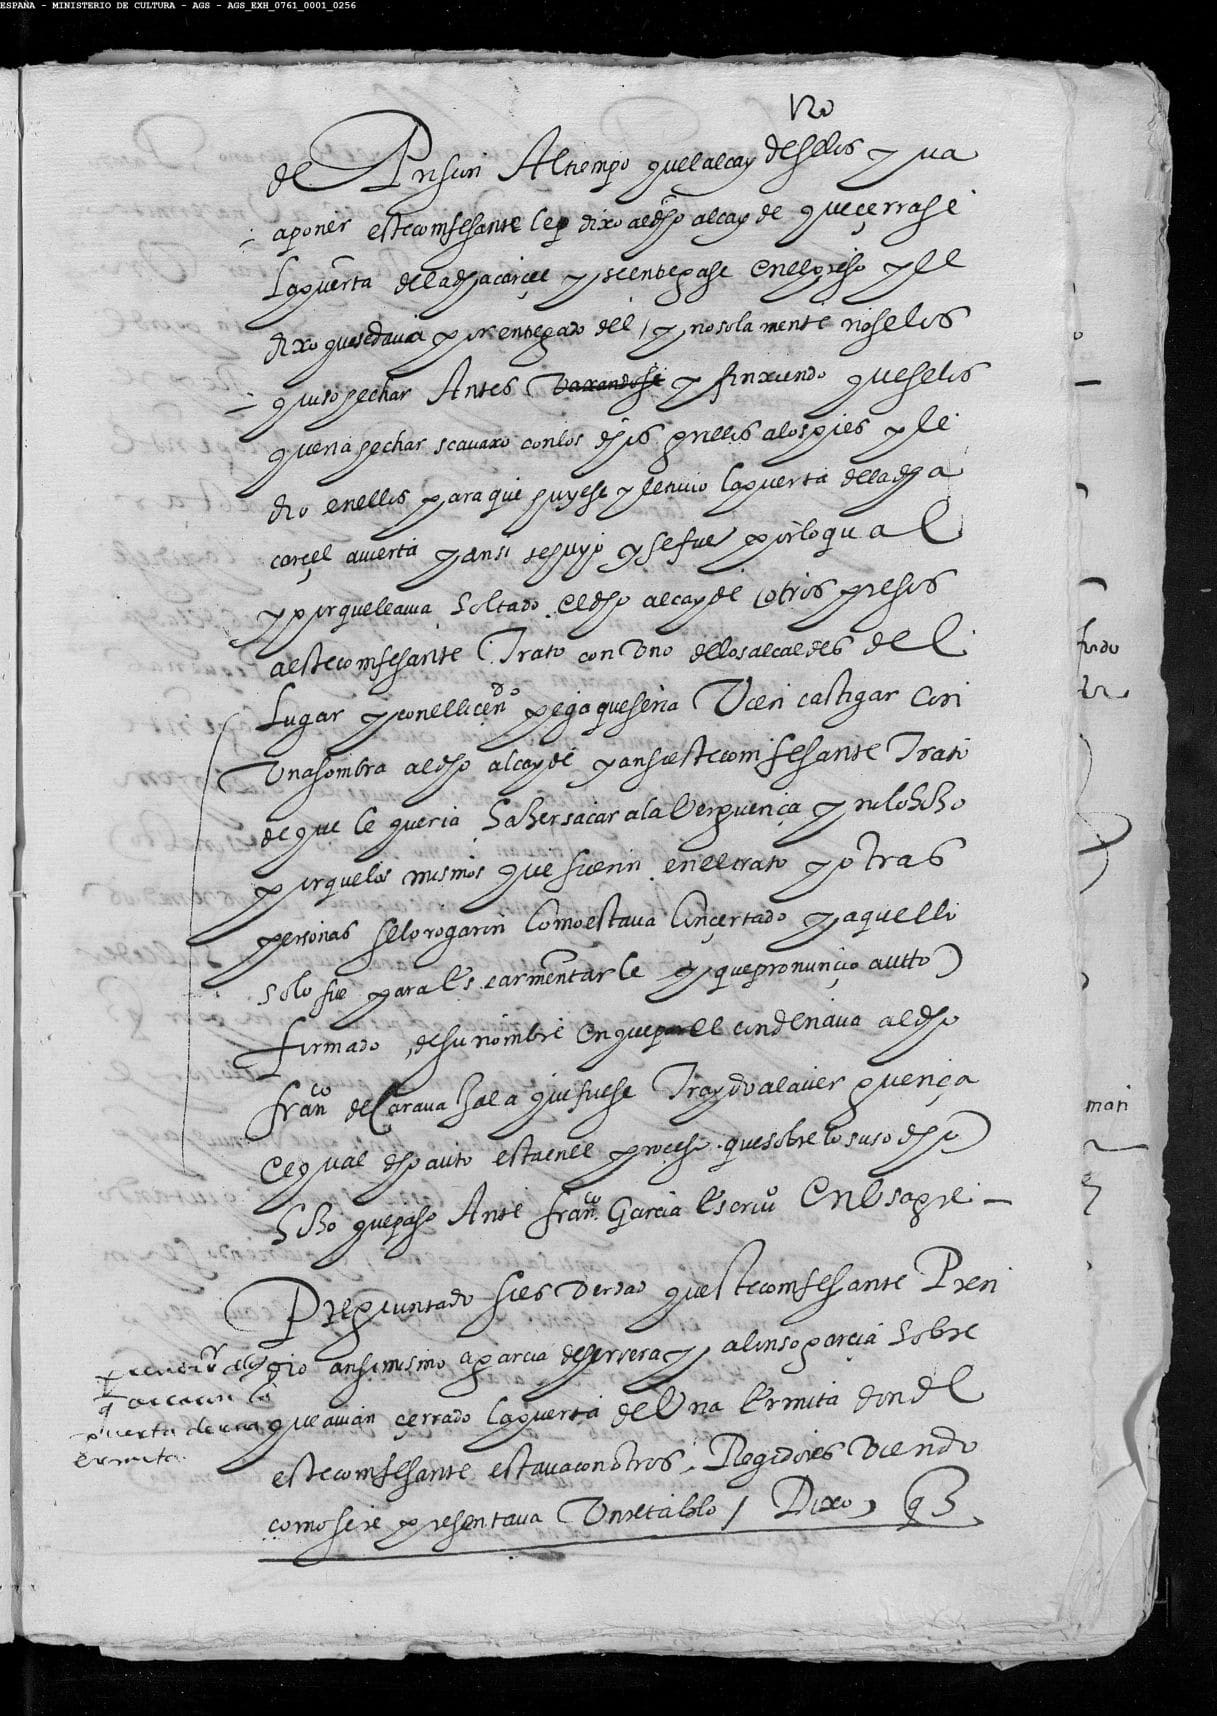 ESPAÑA - MINISTERIO DE CULTURA - AGS - AGS_EXH_0761_0001_0256
de Prision Al tiempo quel alcayde se los yva
a poner este comfesante le dixo al dho alcayde que çerrase
la puerta de la dha carçel y se entregase en el preso y el
dixo que se dava por entregado del / y no solamente no se los
quiso hechar Antes vaxandose y finxiendo que se los
queria hechar se avaxo con los dhos grillos a los pies y le
dio en ellos para que huyese y le tuvo la puerta de la dha
carçel avierta y ansi se huyo y se fue por lo qual
y porque le avia soltado el dho alcayde otros presos
a este comfesante Trato con uno de los alcaldes del
Lugar y con el liçendo que seria vien castigar con
Una sombra al dho alcayde y ansi este comfesante Trato
de que le queria haher sacar a la verguença y no lo hiço
porque los mismos que fueron en el trato y otras
personas se lo rogaron como estava conçertado y aquello
solo fue para escarmentarle y que pronunçio autto
firmado de su nombre en que condenava al dho
franco de Caravahala que fuese Traydo a la verguença
el qual dho auto esta en el proçeso que sobre lo suso dho
hiço que paso Ante franco Garcia escrivo en bsagre —
Preguntado si es verdad queste comfesante Pren
dio ansimismo a garcia de herrera y alonso garcia sobre
que avian çerrado la puerta de Una ermita donde
este comfesante estava con otros Regidores viendo
como se representava Un retablo / Dixo, q
puerta de una
ermita